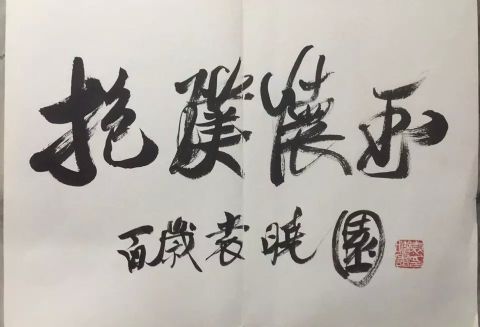 抱璞懷玉
百歲袁曉園